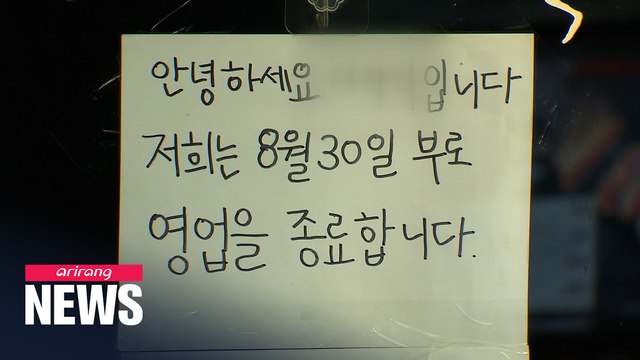 안녕하세요 입니다
저희는 8월 30일 부로
영업을 종료합니다.
arirang
NEWS